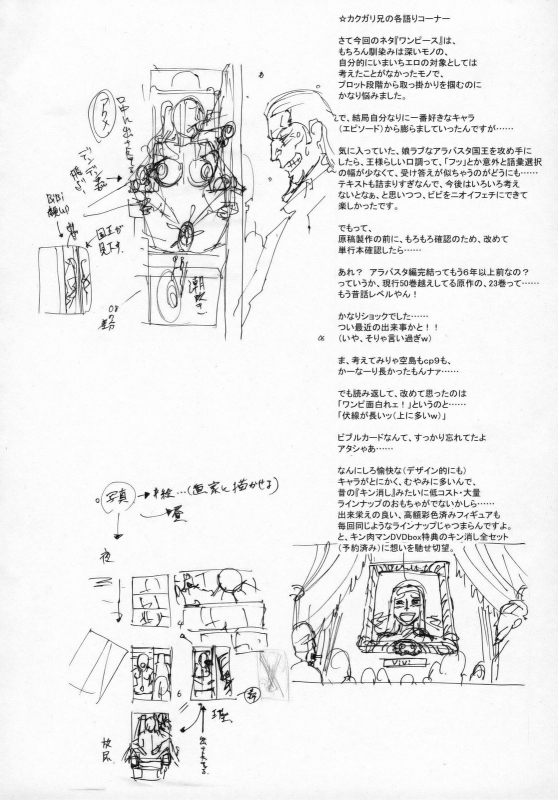 ☆カクガリ兄の各語りコーナー
さて今回のネタ『ワンピース』は、
もちろん馴染みは深いモノの、
自分的にいまいちエロの対象としては
考えたことがなかったモノで、
プロット段階から取っ掛かりを掴むのに
かなり悩みました。
で、結局自分なりに一番好きなキャラ
（エピソード）から膨らましていったんですが……
気に入っていた、娘ラブなアラバスタ国王を攻め手に
したら、王様らしい口調って、「フッ」とか意外と語彙選択
の幅が少なくて、受け答えが似ちゃうのがどうにも……
テキストも詰まりすぎなんで、今後はいろいろ考え
ないとなぁ、と思いつつ、ビビをニオイフェチにできて
楽しかったです。
でもって、
原稿製作の前に、もろもろ確認のため、改めて
単行本確認したら……
あれ？　アラバスタ編完結ってもう６年以上前なの？
っていうか、現行50巻越えしてる原作の、23巻って……
もう昔話レベルやん！
かなりショックでした……
つい最近の出来事かと！！
（いや、そりゃ言い過ぎｗ）
ま、考えてみりゃ空島もcp９も、
かーなーり長かったもんナァ……
でも読み返して、改めて思ったのは
「ワンピ面白れェ！」というのと……
「伏線が長いッ（上に多いｗ）」
ビブルカードなんて、すっかり忘れてたよ
アタシゃあ……
なんにしろ愉快な（デザイン的にも）
キャラがとにかく、むやみに多いんで、
昔の『キン消し』みたいに低コスト・大量
ラインナップのおもちゃがでないかしら……
出来栄えの良い、高額彩色済みフィギュアも
毎回同じようなラインナップじゃつまらんですよ。
と、キン肉マンDVDbox特典のキン消し全セット
（予約済み）に想いを馳せ切望。
アクメ
国王が
見下す
潮吹き
写真
夜
昼
4
6
放尿
ViVi